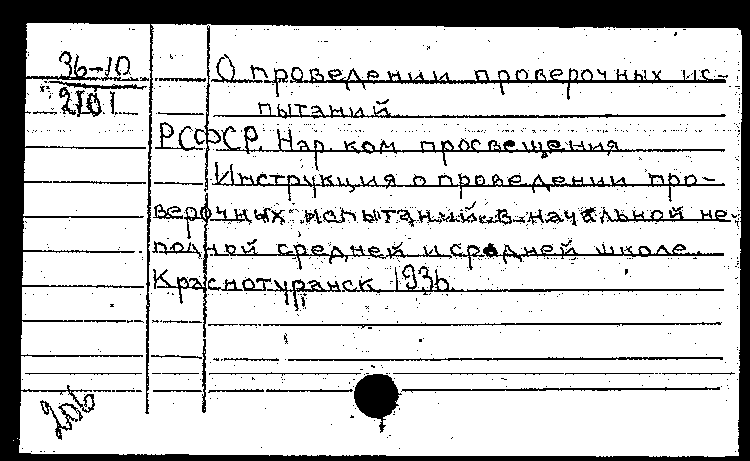 36-10
2101
О проведении проверочных ис-
пытаний.
РСФСР. Нар. ком. просвещения
Инструкция о проведении про-
верочных испытаний в начальной не-
полной средней и средней школе.
Краснотуранск, 1936.
206